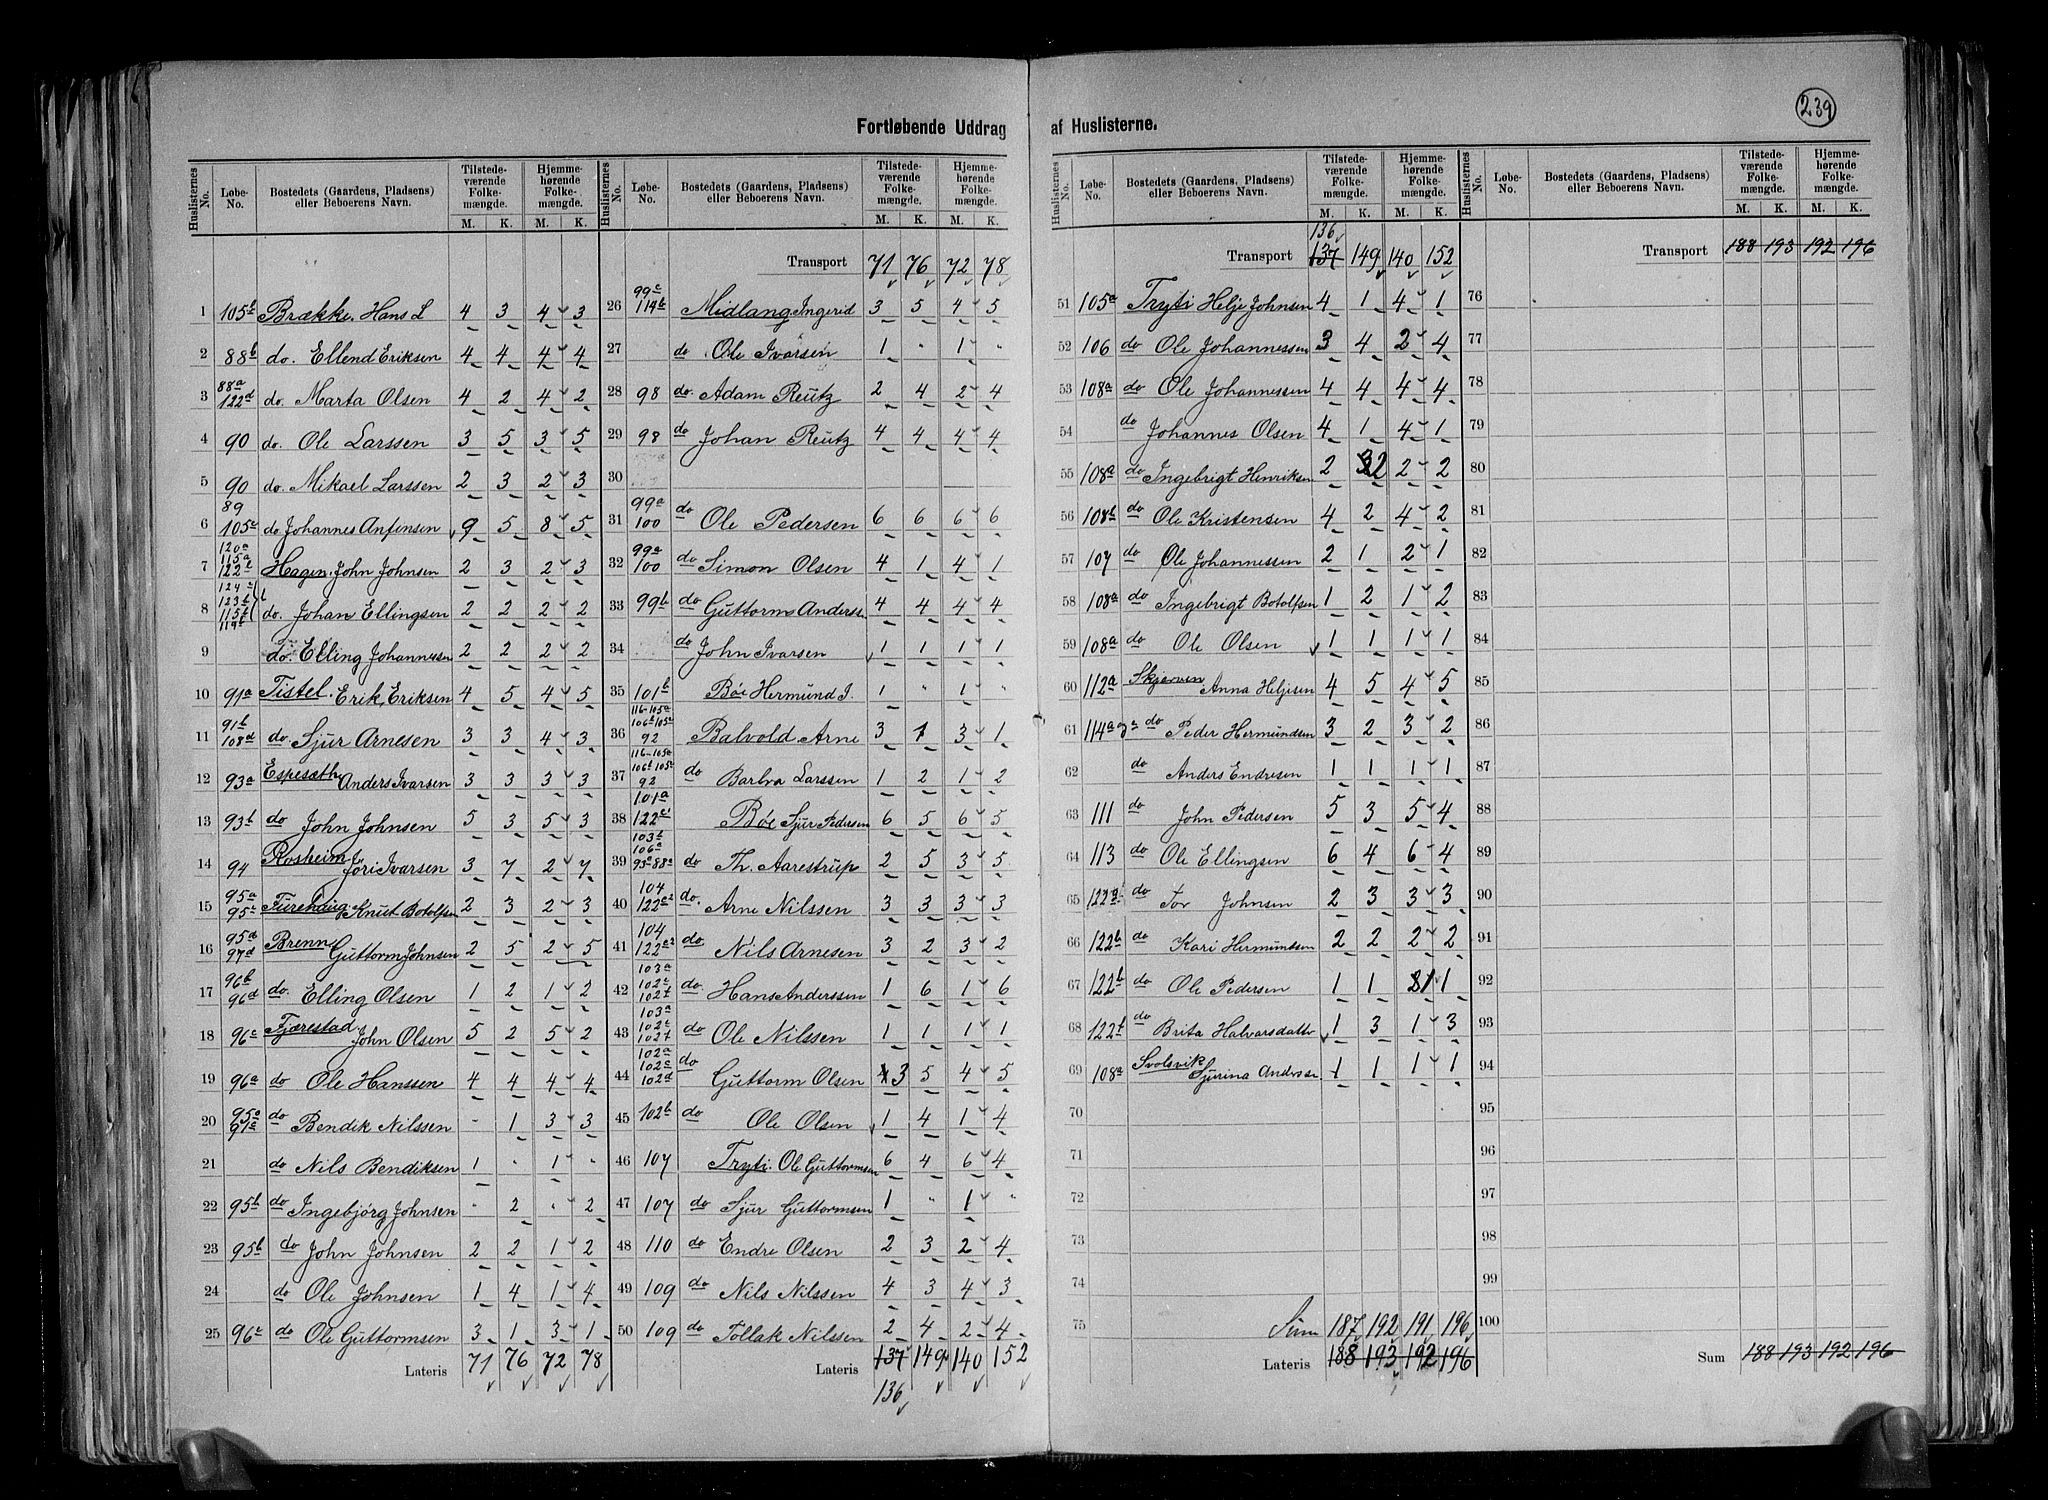 239
Fortløbende Uddrag af Huslisterne.
Huslisternes No. Løbe-No. Bostedets (Gaardens, Pladsens) eller Beboerens Navn. Tilstedeværende Folkemængde. M. K. Hjemmehørende Folkemængde. M. K.
1 105b Brække. Hans L 4 3 4 3
2 88b do. Ellend Eriksen 4 4 4 4
3 88a 122d do. Marta Olsen 4 2 4 2
4 90 do. Ole Larssen 3 5 3 5
5 90 do. Mikael Larssen 2 3 2 3
6 89 105c do Johannes Anfinsen 9 5 8 5
7 120a 115a 122c Hagen. John Johnsen 2 3 2 3
8 124c 123b 115b 119b do. Johan Ellingsen 2 2 2 2
9 do. Elling Johannesen 2 2 2 2
10 91a Tistel. Erik Eriksen 4 5 4 5
11 91b 108d do. Sjur Arnesen 3 3 4 3
12 93a Espesæth Anders Ivarsen 3 3 3 3
13 93b do John Johnsen 5 3 5 3
14 94 Rosheim Jöri Ivarsen 3 7 2 7
15 95a 95c Furehaug Knut Botolfsen 2 3 2 3
16 95d 97d Brenn Guttorm Johnsen 2 5 2 5
17 96b 96d do. Elling Olsen 1 2 1 2
18 96c Fjærestad John Olsen 5 2 5 2
19 96a do Ole Hanssen 4 4 4 4
20 95a 97a do Bendik Nilssen - 1 3 3
21 do Nils Bendiksen 1 " 1 "
22 95b do Ingebjörg Johnsen " 2 " 2
23 95b do John Johnsen 2 2 1 2
24 do Ole Johnsen 1 4 1 4
25 96c do Ole Guttormsen 3 1 3 1
Lateris 71 76 72 78
Huslisternes No. Løbe-No. Bostedets (Gaardens, Pladsens) eller Beboerens Navn. Tilstedeværende Folkemængde. M. K. Hjemmehørende Folkemængde. M. K.
Transport 71 76 72 78
26 99c 114b Midlang Ingerid 3 5 4 5
27 do. Ole Ivarsen 1 " 1 "
28 98 do. Adam Reutz 2 4 2 4
29 98 do Johan Reutz 4 4 4 4
30
31 99a 100 do Ole Pedersen 6 6 6 6
32 99a 100 do Simon Olsen 4 1 4 1
33 99b do Guttorm Anderss 4 4 4 4
34 do John Ivarsen 1 1 1 1
35 101b Bøe Hermund I. 1 " 1 "
36 116-105a 106b 105a 92 Balvold Arne 3 1 3 1
37 116-105a 106b 105a 92 do Barbra Larssen 1 2 1 2
38 101a 122c1 103b Bøe Sjur Pedersen 6 5 6 5
39 106a 95a-88a do Th. Aarestrup 2 5 3 5
40 104 122a2 do. Arne Nilssen 3 3 3 3
41 104 122a2 do Nils Arnesen 3 2 3 2
42 103a 102c 102f do. Hans Anderssen 1 6 1 6
43 103a 102c 102f do Ole Nilssen 1 1 1 1
44 102a 102c 102d do Guttorm Olsen 3 5 4 5
45 102b do Ole Olsen 1 4 1 4
46 107 Tryti. Ole Guttormsen 6 4 6 4
47 107 do Sjur Guttormsen 1 " 1 "
48 110 do Endre Olsen 2 3 2 4
49 109 do Nils Nilssen 4 3 4 3
50 109 do Tollak Nilssen 2 4 2 4
Lateris 137 149 140 152
136
Huslisternes No. Løbe-No. Bostedets (Gaardens, Pladsens) eller Beboerens Navn. Tilstedeværende Folkemængde. M. K. Hjemmehørende Folkemængde. M. K.
136
Transport 137 149 140 152
51 105a Tryti Helje Johnsen 4 1 4 1
52 106 do Ole Johannessen 3 4 2 4
53 108a do Ole Johannessen 4 4 4 4
54 do Johannes Olsen 4 1 4 1
55 108a do Ingebrigt Henriksen 2 2 2 2
56 108b do Ole Kristensen 4 2 4 2
57 107 do Ole Johannessen 2 1 2 1
58 108a do Ingebrigt Botolfsen 1 2 1 2
59 108a do Ole Olsen 1 1 1 1
60 112a Skjerven Anna Heljesen 4 5 4 5
61 114a do Peder Hermundsen 3 2 3 2
62 do Anders Endresen 1 1 1 1
63 111 do John Pedersen 5 3 5 4
64 113 do Ole Ellingsen 6 4 6 4
65 122g do Tor Johnsen 2 3 3 3
66 122b do Kari Hermundsen 2 2 2 2
67 122b do Ole Pedersen 1 1 1 1
68 122f do Brita Halvarsdatter 1 3 1 3
69 108a Svolsvik Sjurina Anderss 1 1 1 1
70
71
72
73
74
75 Sum 187 192 191 196
Lateris 188 193 192 196
Huslisternes No. Løbe-No. Bostedets (Gaardens, Pladsens) eller Beboerens Navn. Tilstedeværende Folkemængde. M. K. Hjemmehørende Folkemængde. M. K.
Transport 188 193 192 196
76
77
78
79
80
81
82
83
84
85
86
87
88
89
90
91
92
93
94
95
96
97
98
99
100
Sum 188 193 192 196